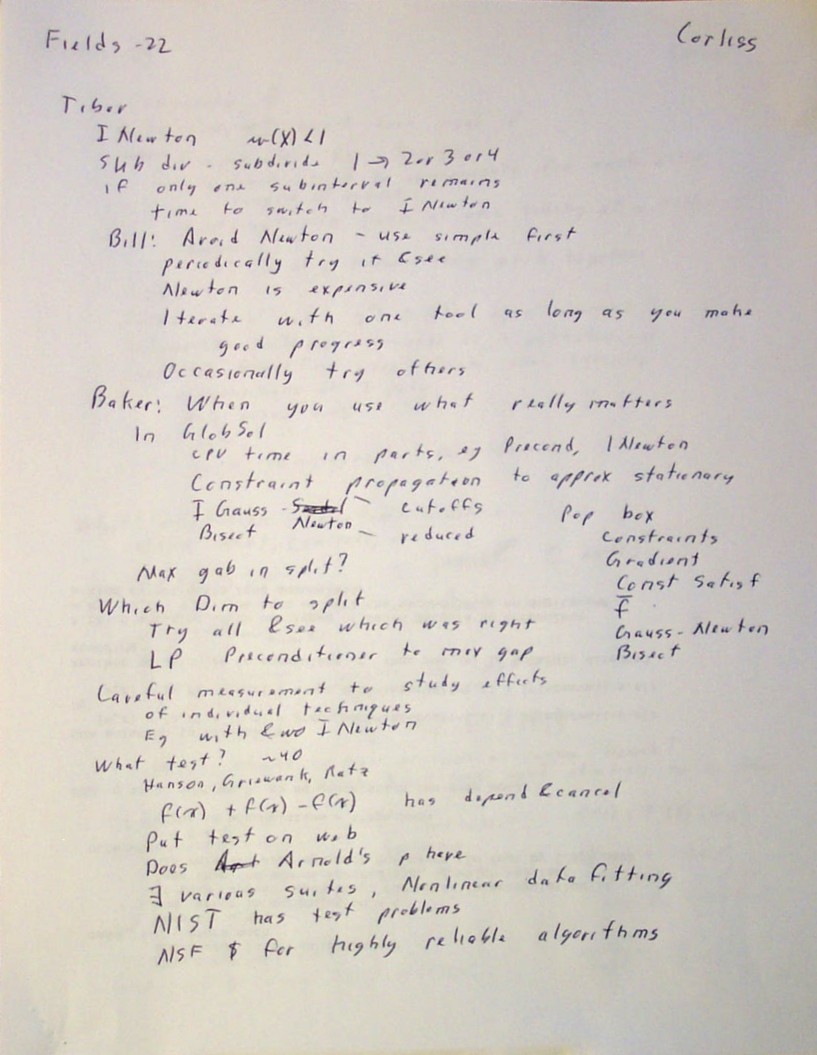 Fields -22
Corliss
Tibor
I Newton w(X) < 1
Subdiv - subdivide 1 → 2 or 3 or 4
if only one subinterval remains
time to switch to I Newton
Bill: Avoid Newton - use simple first
periodically try it & see
Newton is expensive
Iterate with one tool as long as you make
good progress
Occasionally try others
Baker: When you use what really matters
In GlobSol
CPU time in parts, eg Precond, I Newton
Constraint propagation to approx stationary
I Gauss - Newton – cutoffs
Bisect – reduced
Max gab in split?
Pop box
Constraints
Gradient
Const Satisf
f̅
Gauss-Newton
Bisect
Which Dim to split
Try all & see which was right
LP Preconditioner to max gap
Careful measurement to study effects
of individual techniques
Eg with & wo I Newton
What test? ~40
Hanson, Griewank, Ratz
f(x) + f(x) - f(x) has depend & cancel
Put test on web
Does Arnold's p here
∃ various suites, Nonlinear data fitting
NIST has test problems
NSF $ for highly reliable algorithms